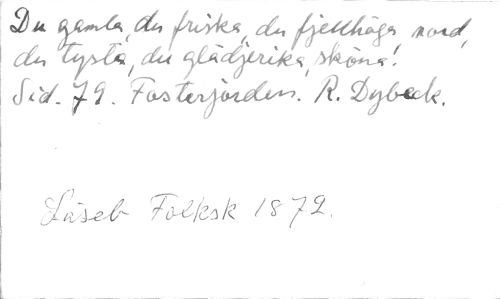 Du gamla, du friska, du fjellhöga nord,
du tysta, du glädjerika, sköna!
Sid. 79. Fosterjorden. R. Dybeck.
Läseb Folksk 1872.